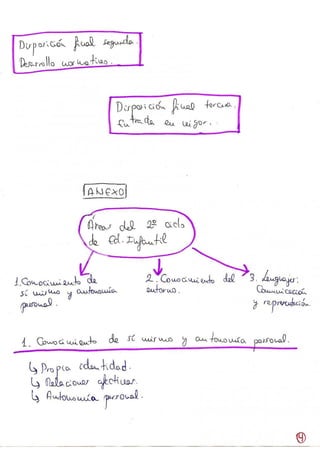 Disposición final segunda.
Desarrollo normativo.
Disposición final tercera.
Entrada en vigor.
ANEXO
Áreas del 2º ciclo
de Ed. Infantil
1. Conocimiento de
sí mismo y autonomía
personal.
2. Conocimiento del
entorno.
3. Lenguajes:
Comunicación
y representación.
1. Conocimiento de sí mismo y autonomía personal.
↳ Propia identidad.
↳ Relaciones afectivas.
↳ Autonomía personal.
14